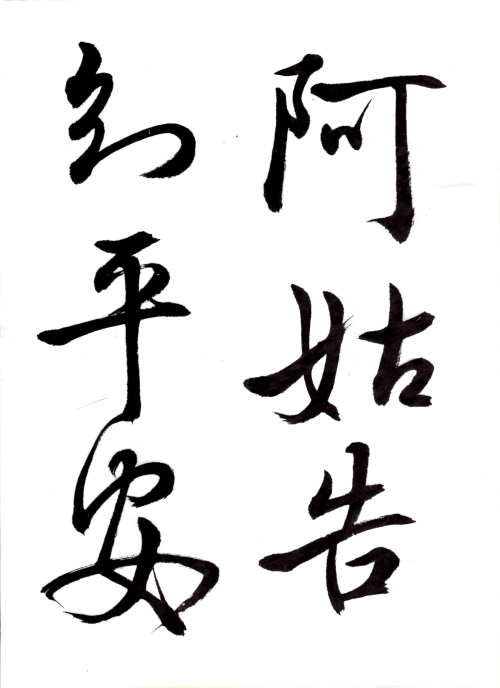 阿姑告
知平安